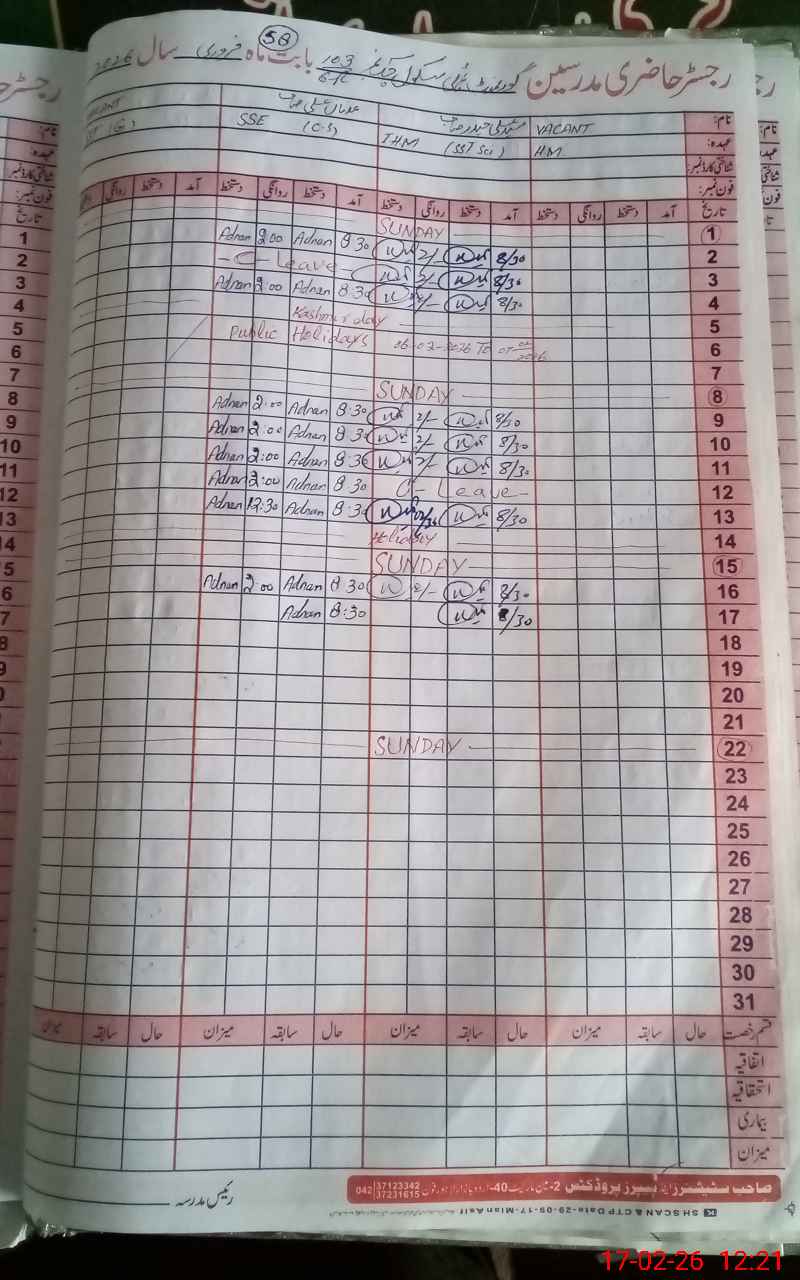 رجسٹر حاضری مدرسین گورنمنٹ ہائی سکول چک نمبر 103/6-R بابت ماہ فروری سال 2026
58
نام: VACANT
VACANT
عہدہ: H.M. (SST Sci) THM (C.S) SSE
شناختی کارڈ نمبر:
فون نمبر:
تاریخ آمد دستخط روانگی دستخط آمد دستخط روانگی دستخط آمد دستخط روانگی دستخط آمد دستخط روانگی
1 SUNDAY
2 8/30 2/- Adnan 8 30 Adnan 2:00
3 8/30 2/- - C - Leave -
4 8/30 2/- Adnan 8:30 Adnan 2:00
5 Kashmir day
6 Public Holidays 06-02-2026 To 07-02-2026
7
8 SUNDAY
9 8/30 2/- Adnan 8:30 Adnan 2:00
10 8/30 2/- Adnan 8:30 Adnan 2:00
11 8/30 2/- Adnan 8:30 Adnan 2:00
12 C- Leave - Adnan 8:30 Adnan 2:00
13 8/30 Adnan 8:30 Adnan 12:30
14 Holiday
15 SUNDAY
16 8/30 2/- Adnan 8:30 Adnan 2:00
17 8/30 Adnan 8:30
18
19
20
21
22 SUNDAY
23
24
25
26
27
28
29
30
31
قسم رخصت حال سابقہ میزان حال سابقہ میزان حال سابقہ میزان حال سابقہ میزان
اتفاقیہ
استحقاقیہ
بیماری
میزان
صاحب سٹیشنرز اینڈ پیپرز پروڈکٹس 042 37123342 37231615
رئیس مدرسہ
SH SCAN & CTP Date-29-09-17-Mian Asif
17-02-26 12:21